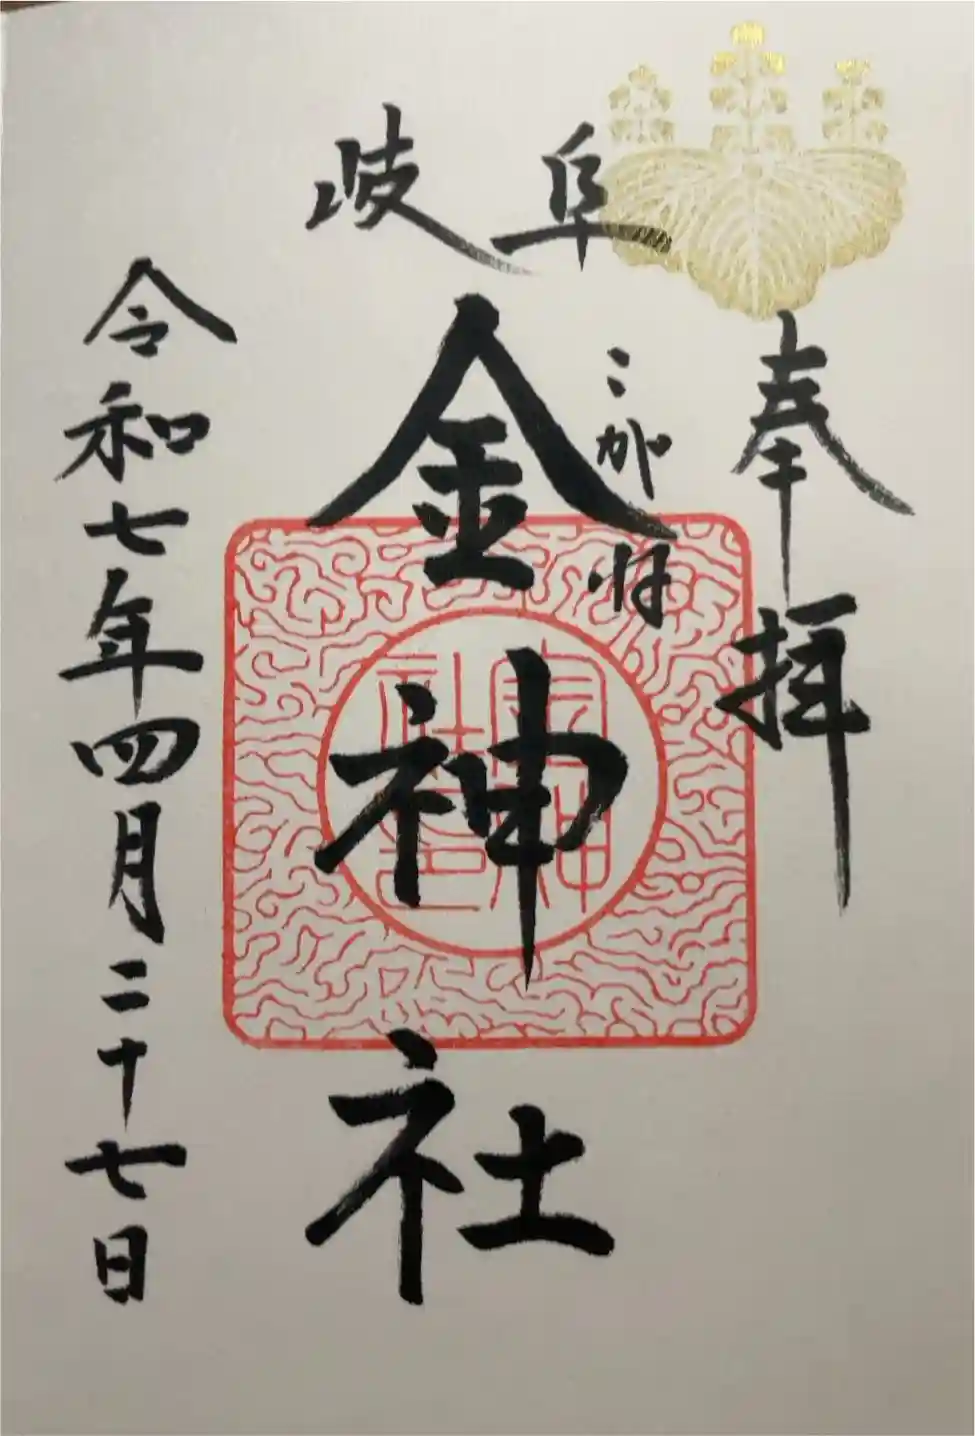 奉拝
岐阜
こがね
金神社
金神社印
令和七年四月二十七日